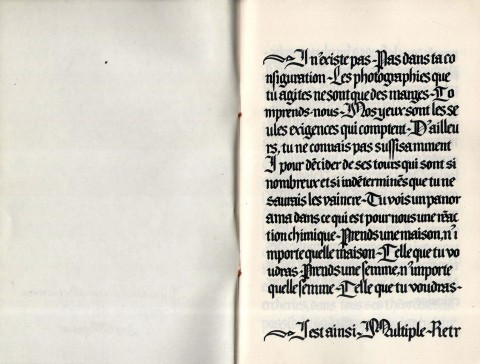 I n'existe pas-Pas dans ta co
nfiguration-Les photographies que
tu agites ne sont que des marges-To
mprends-nous-Nos yeux sont les se
ules exigences qui comptent-D'ailleu
rs, tu ne connais pas suffisamment
I pour décider de ses tours qui sont si
nombreux et si indéterminés que tu ne
saurais les vaincre-Tu vois un panor
ama dans ce qui est pour nous une réac
tion chimique-Prends une maison, n'i
mporte quelle maison-Telle que tu vo
udras-Prends une femme, n'importe
quelle femme-Telle que tu voudras-
I est ainsi-Multiple-Retr